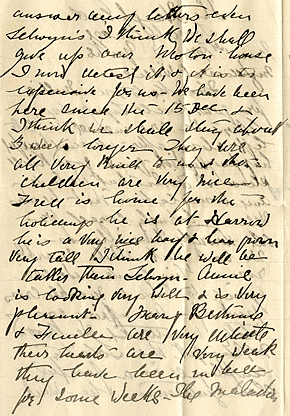 answer any letters even
Selwyn's I think We shall
give up our Weston house
I now detest it, & it is so
expensive for us - We have been
here since the 15 Dec &
I think we shall stay about
3 weeks longer They are
all very kind to us & the
children are very nice
Fred is home for the
holidays he is at Harrow
he is a very nice boy & has grown
very tall I think he will be
taller than Selwyn - Annie
is looking very well & is very
pleasant -
& are very delicate
their hearts are very weak
they have been in bed
for some weeks - The